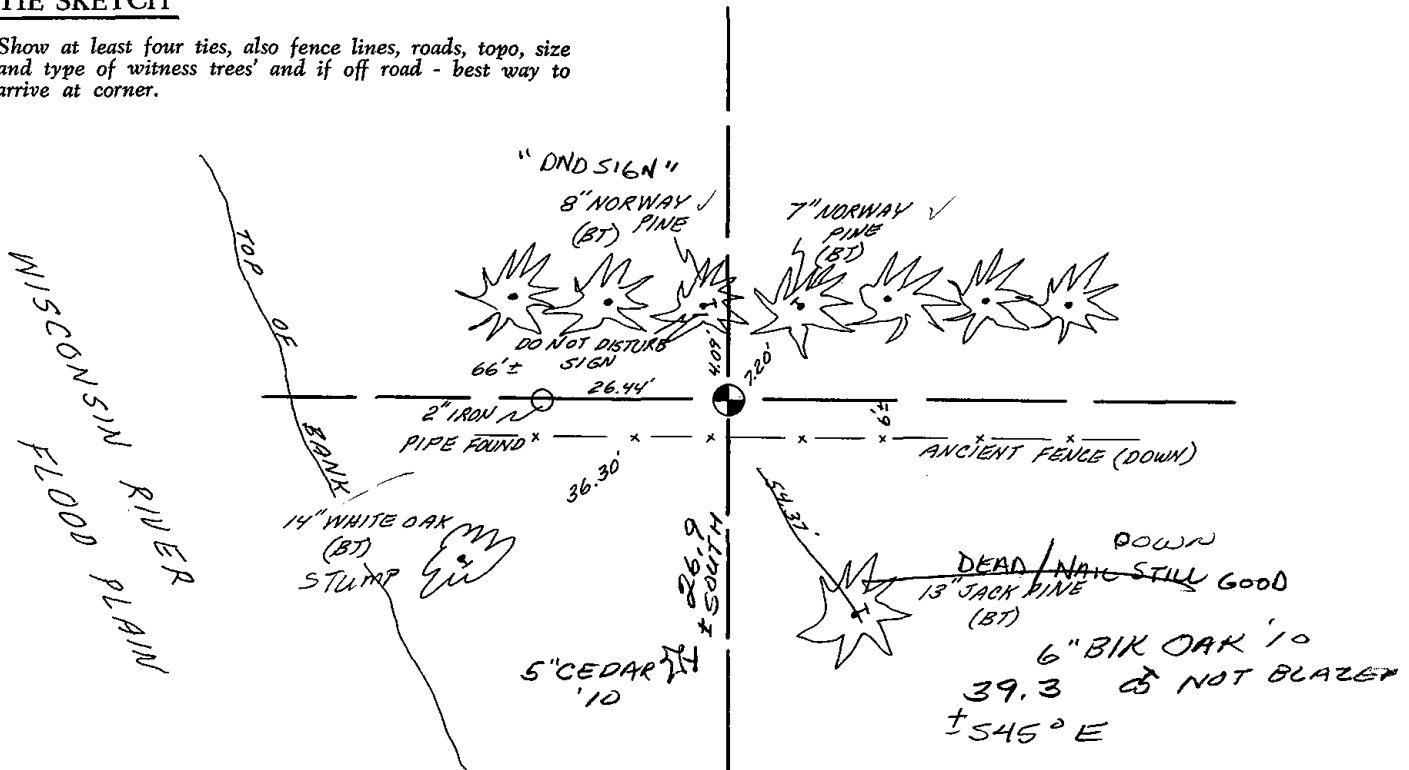 TIE SKETCH
Show at least four ties, also fence lines, roads, topo, size
and type of witness trees' and if off road - best way to
arrive at corner.
"DND SIGN"
8" NORWAY ✓
(BT) PINE
7" NORWAY ✓
PINE
(BT)
TOP OF BANK
WISCONSIN RIVER
FLOOD PLAIN
DO NOT DISTURB
SIGN
66'±
26.44'
4.09'
7.20'
2" IRON
PIPE FOUND
6'±
ANCIENT FENCE (DOWN)
36.30'
54.37'
14" WHITE OAK
(BT)
STUMP
26.9
± SOUTH
5" CEDAR
'10
DOWN
DEAD/NAIL STILL GOOD
13" JACK PINE
(BT)
6" BLK OAK '10
39.3 NOT BLAZED
± S45° E